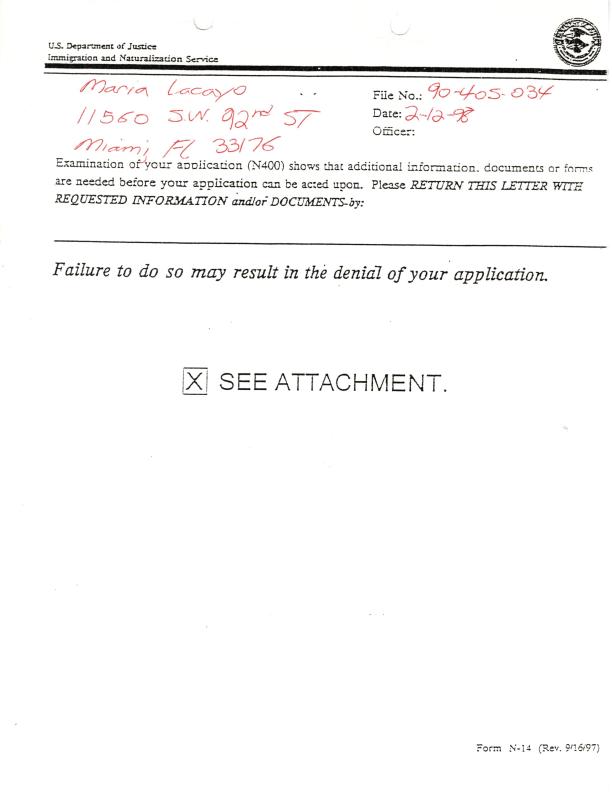 U.S. Department of Justice
Immigration and Naturalization Service
Maria Lacayo
11560 S.W. 92nd ST
Miami, FL 33176
File No.: 90-405-034
Date: 2-12-98
Officer:
Examination of your application (N400) shows that additional information, documents or forms
are needed before your application can be acted upon. Please RETURN THIS LETTER WITH
REQUESTED INFORMATION and/or DOCUMENTS by:
Failure to do so may result in the denial of your application.
X SEE ATTACHMENT.
Form N-14 (Rev. 9/16/97)